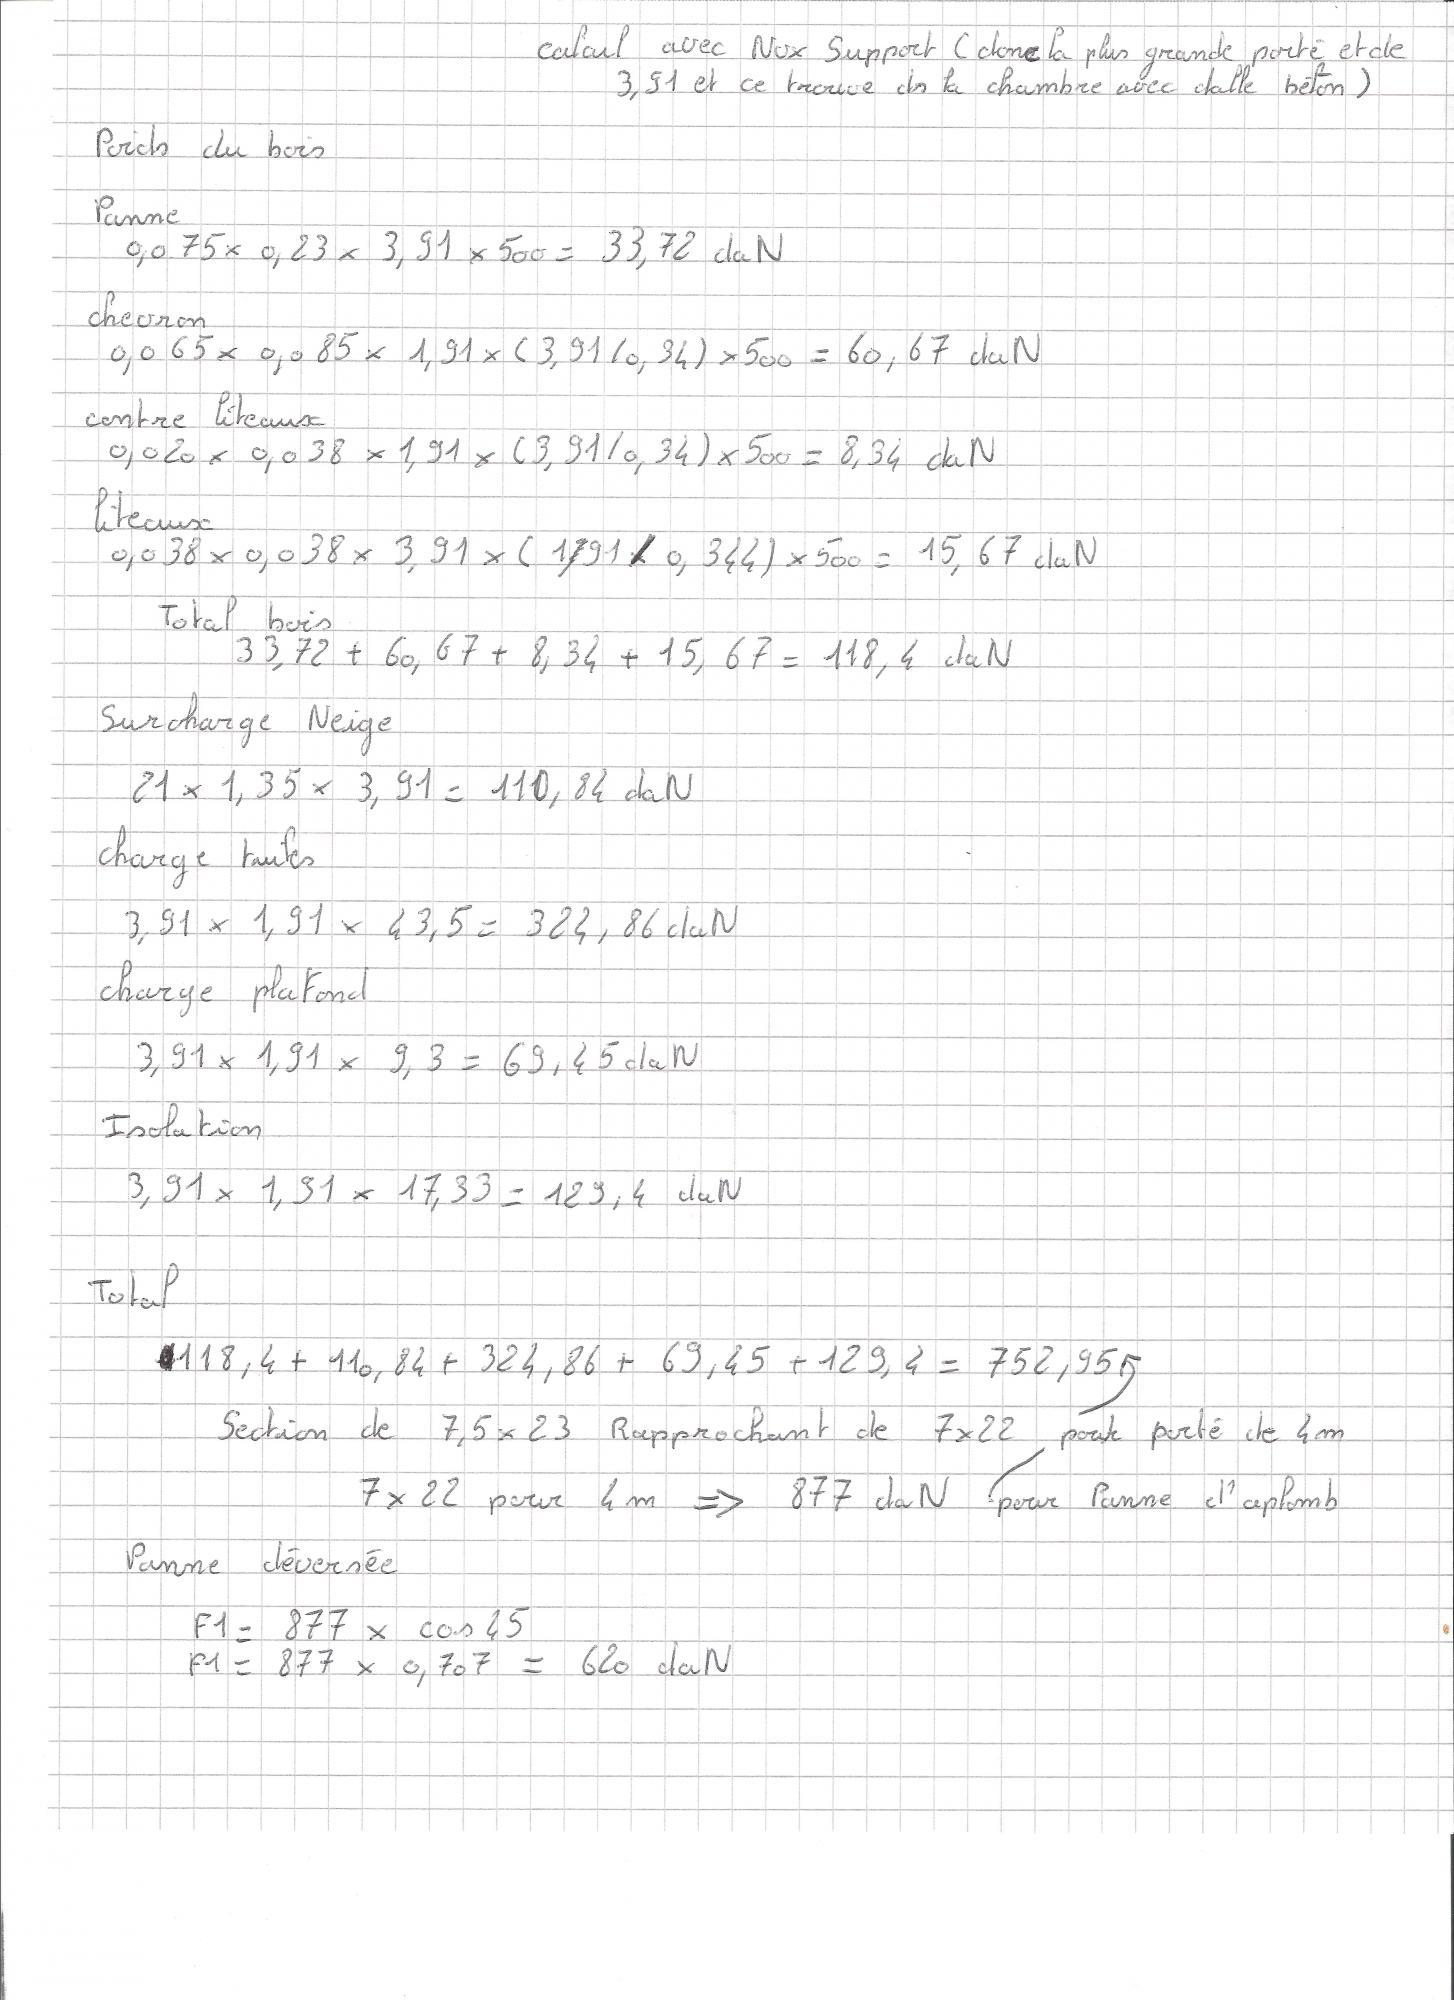 calcul avec Nox Support (donc la plus grande porté et de
3,91 et ce trouve ds la chambre avec dalle béton)
Poids du bois
Panne
0,075 x 0,23 x 3,91 x 500 = 33,72 daN
chevron
0,065 x 0,085 x 1,91 x (3,91/0,34) x 500 = 60,67 daN
contre liteaux
0,020 x 0,038 x 1,91 x (3,91/0,34) x 500 = 8,34 daN
liteaux
0,038 x 0,038 x 3,91 x (1,91/0,344) x 500 = 15,67 daN
Total bois
33,72 + 60,67 + 8,34 + 15,67 = 118,4 daN
Surcharge Neige
21 x 1,35 x 3,91 = 110,84 daN
charge tuiles
3,91 x 1,91 x 43,5 = 324,86 daN
charge plafond
3,91 x 1,91 x 9,3 = 69,45 daN
Isolation
3,91 x 1,91 x 17,33 = 129,4 daN
Total
118,4 + 110,84 + 324,86 + 69,45 + 129,4 = 752,95
Section de 7,5 x 23 Rapprochant de 7x22 pour porté de 4m
7 x 22 pour 4m => 877 daN pour Panne d'aplomb
Panne déversée
F1 = 877 x cos 45
F1 = 877 x 0,707 = 620 daN